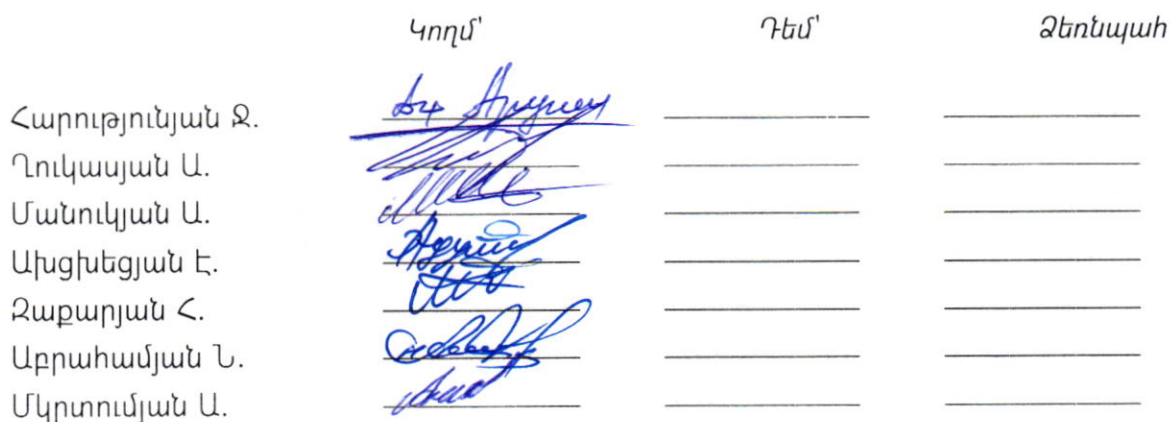 Կողմ՝ Դեմ՝ Ձեռնպահ
Հարությունյան Ջ.
Ղուկասյան Ա.
Մանուկյան Ա.
Ախցխեցյան Է.
Զաքարյան Հ.
Աբրահամյան Ն.
Մկրտումյան Ա.